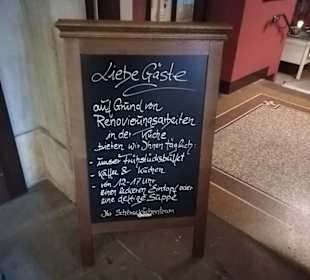 Liebe Gäste
auf Grund von
Renovierungsarbeiten
in der Küche
bieten wir Ihnen täglich:
- unser Frühstücksbüfett
- Kaffee & Kuchen
- von 12-17 Uhr
einen leckeren Eintopf oder
eine deftige Suppe
Ihr